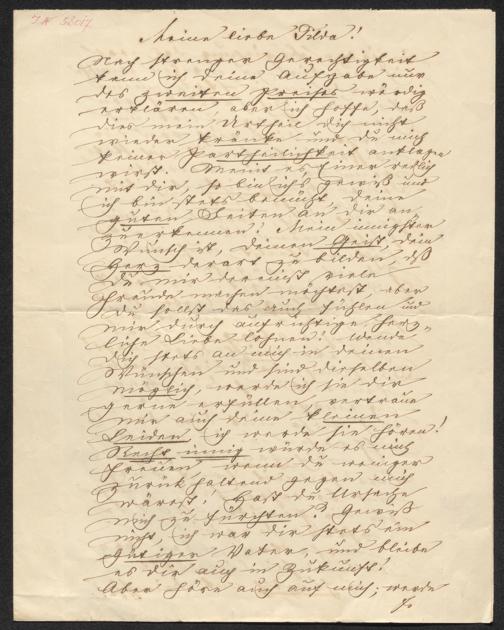 Meine liebe Tilda!
Nach strenger Gerechtigkeit
kann ich deine Aufgabe nur
des zweiten Preises würdig
erklären, aber ich hoffe, daß
dies mein Urtheil dich nicht
wieder kränke und du mich
keiner Partheilichkeit anklagen
wirst. Meint es Einer redlich
mit dir, so bin ich's gewiß und
ich bin stets bemüht, deine
guten Seiten an dir an-
zuerkennen! Mein innigster
Wunsch ist, deinen Geist, dein
Herz derart zu bilden, daß
du mir dereinst viele
Freude machen möchtest, aber
du sollst das auch fühlen und
mir durch aufrichtige, herz-
liche Liebe lohnen! Wende
dich stets an mich in deinen
Wünschen und sind dieselben
möglich, werde ich sie dir
gerne erfüllen, vertraue
mir auch deine kleinen
Leiden, ich werde sie hören!
Recht innig würde es mich
freuen wenn du weniger
zurückhaltend gegen mich
wärest! Hast du Ursache
mich zu fürchten? Gewiß
nicht, ich war dir stets ein
gütiger Vater, und bleibe
es dir auch in Zukunft!
Aber höre auch auf mich; werde